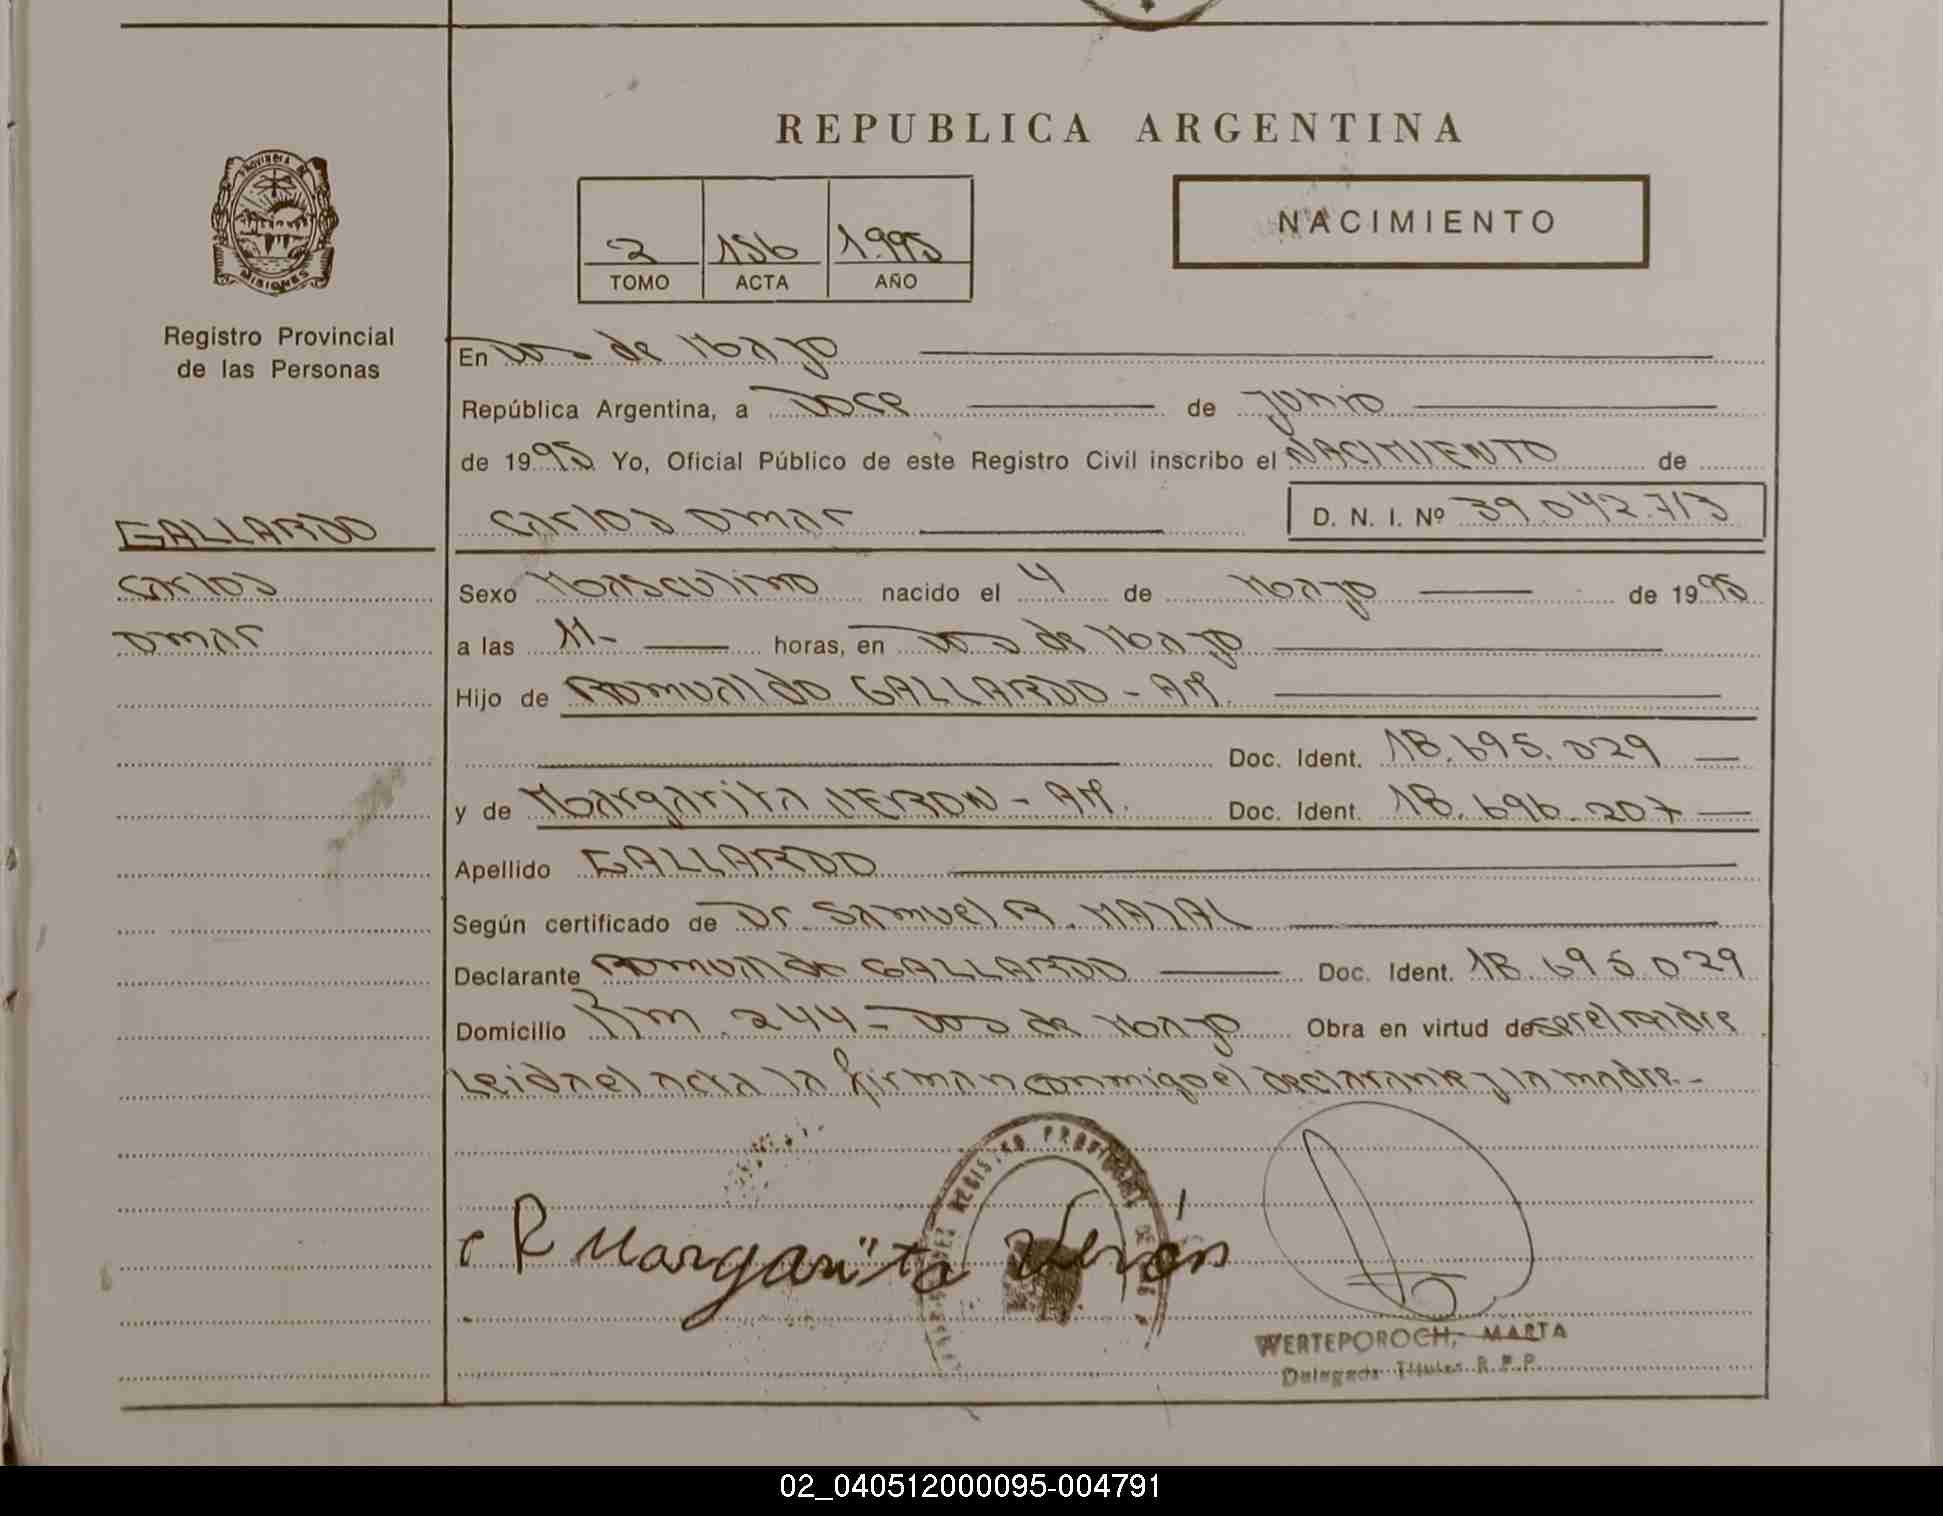 REPUBLICA ARGENTINA
PROVINCIA DE
MISIONES
Registro Provincial
de las Personas
2 156 1.995
TOMO ACTA AÑO
NACIMIENTO
En Dos de Mayo
República Argentina, a Doce de junio
de 1995 Yo, Oficial Público de este Registro Civil inscribo el NACIMIENTO de
Carlos Omar D. N. I. Nº 39.042.713
GALLARDO
Carlos
Omar
Sexo Masculino nacido el 4 de Mayo de 1995
a las 11- horas, en Dos de Mayo
Hijo de Romualdo GALLARDO - AR.
Doc. Ident. 18.695.029
y de Margarita VERON - AR. Doc. Ident. 18.696.207
Apellido GALLARDO
Según certificado de Dr. Samuel R. MAZAL
Declarante Romualdo GALLARDO Doc. Ident. 18.695.029
Domicilio Km. 244 - Dos de Mayo Obra en virtud de ser el padre
Leida el acta la firman conmigo el declarante y la madre.-
REGISTRO PROVINCIAL DE
R Margarita Verón
WERTEPOROCH, MARTA
Delegada Titular R.P.P.
02_040512000095-004791